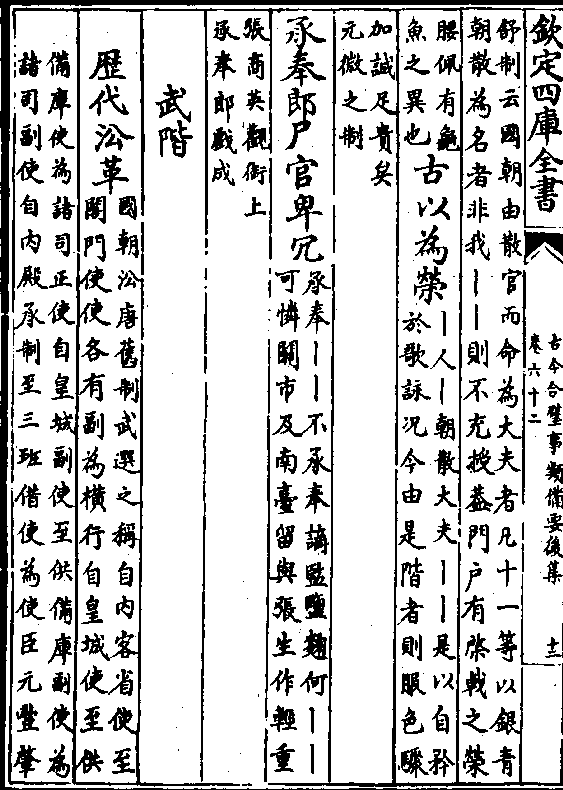 欽定四庫全書
古今合璧事類備要後集
卷六十二
十三
舒制云國朝由散官而命為大夫者凡十一等以銀青
朝散為名者非我｜｜則不充授葢門户有棨戟之榮
腰佩有龜
魚之異也
古以為榮
｜人｜朝散大夫｜｜是以自矜
於歌詠况今由是階者則服色驟
加誠足貴矣
元微之制
承奉郎户官卑冗
承奉｜｜不承奉謫監鹽麴何｜｜
可憐關市及南臺留與張生作輕重
張商英觀衙上
承奉郎戲成
武階
歴代沿革
國朝沿唐舊制武選之稱自内客省使至
閤門使使各有副為横行自皇城使至供
備庫使為諸司正使自皇城副使至供備庫副使為
諸司副使自内殿承制至三班借使為使臣元豐肇